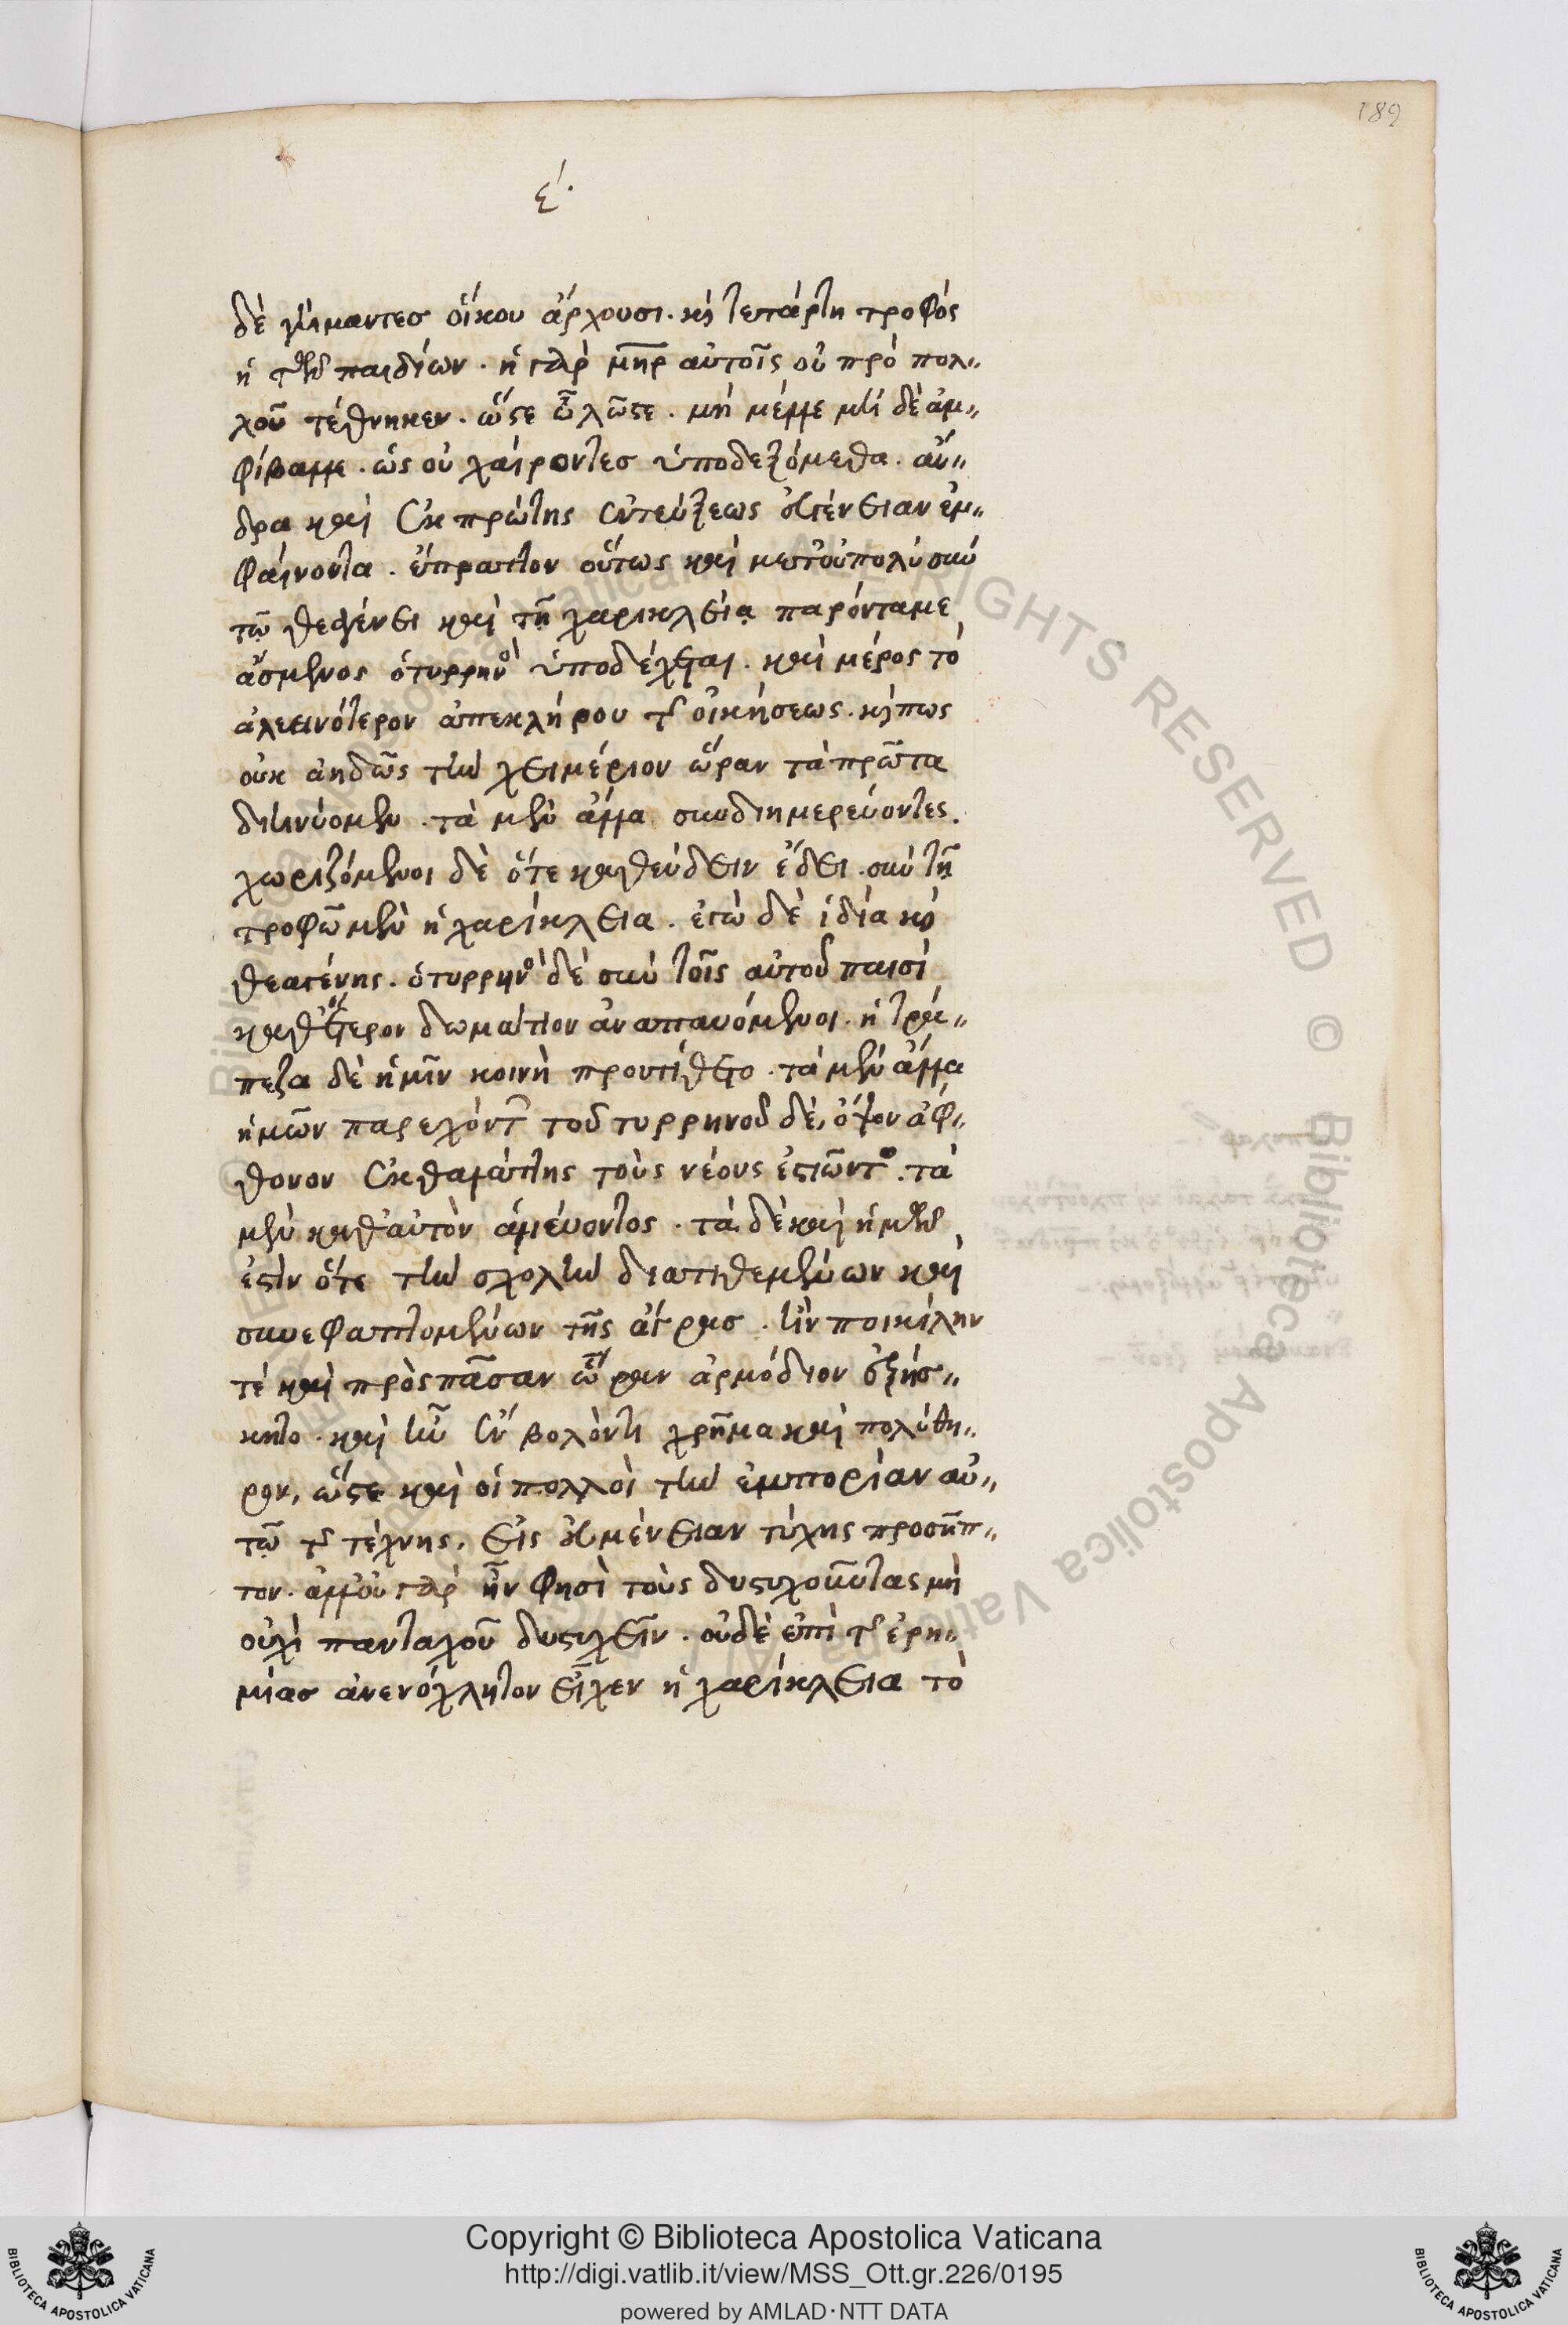 189
ε΄.
δὲ γήμαντεσ οἴκου ἄρχουσι. καὶ τετάρτη τροφὸς
ἡ τῶν παιδίων. ἡ γὰρ μηρ αὐτοῖς οὐ πρὸ πολ„
λοῦ τέθνηκεν. ὥστε ὦ λῶστε. μὴ μέλλε μὴ δὲ ἀμ„
φίβαλλε. ὡς οὐ χαίροντεσ ὑποδεξόμεθα. ἄν„
δρα καὶ ἐκ πρώτης ἐντεύξεως εὐγένειαν ἐμ„
φαίνοντα. ἔπραττον οὕτως καὶ μετ' οὐ πολὺ σὺν
τῷ θεαγένει καὶ τῇ χαρικλείᾳ παρόντα με
ἄσμενος ὁ τυρρηνὸς ὑποδέχεται. καὶ μέρος τὸ
ἀλεεινότερον ἀπεκλήρου τῆς οἰκήσεως. καί πως
οὐκ ἀηδῶς τὴν χειμέριον ὥραν τὰ πρῶτα
διηνύομεν. τὰ μὲν ἄλλα συνδιημερεύοντες.
χωριζόμενοι δὲ ὅτε καθεύδειν ἔδει. σὺν τῇ
τροφῷ μὲν ἡ χαρίκλεια. ἐγὼ δὲ ἰδία καὶ
θεαγένης. ὁ τυρρηνὸς δὲ σὺν τοῖς αὐτοῦ παισὶ
καθ' ἕτερον δωμάτιον ἀναπαυόμενοι. ἡ τρά„
πεζα δὲ ἡμῖν κοινὴ προυτίθετο. τὰ μὲν ἄλλα
ἡμῶν παρεχόντων τοῦ τυρρηνοῦ δὲ, ὄψον ἀφ„
θονον ἐκ θαλάττης τοὺς νέους ἑστιῶντος. τὰ
μὲν καθ' αὑτὸν ἁλιεύοντος. τὰ δὲ καὶ ἡμῶν
ἐστὶν ὅτε τὴν σχολὴν διατιθεμένων καὶ
συνεφαπτομένων τῆς ἄγρασ. ἣν ποικίλην
τέ καὶ πρὸς πᾶσαν ὥραν ἁρμόδιον ἐξήσ„
κητο. καὶ ἦν εὔβολόν τι χρῆμα καὶ πολύθη„
ρον, ὥστε καὶ οἱ πολλοὶ τὴν ἐμπορίαν αὐ„
τῷ τῆς τέχνης, εἰς εὐμένειαν τύχης προσῆπ„
τον. ἀλλ' οὐ γὰρ ἦν φησὶ τοὺς δυστυχοῦντας μὴ
οὐχὶ πανταχοῦ δυστυχεῖν. οὐδὲ ἐπὶ τῆς ἐρη„
μίασ ἀνενόχλητον εἶχεν ἡ χαρίκλεια τὸ
Copyright © Biblioteca Apostolica Vaticana
http://digi.vatlib.it/view/MSS_Ott.gr.226/0195
powered by AMLAD·NTT DATA